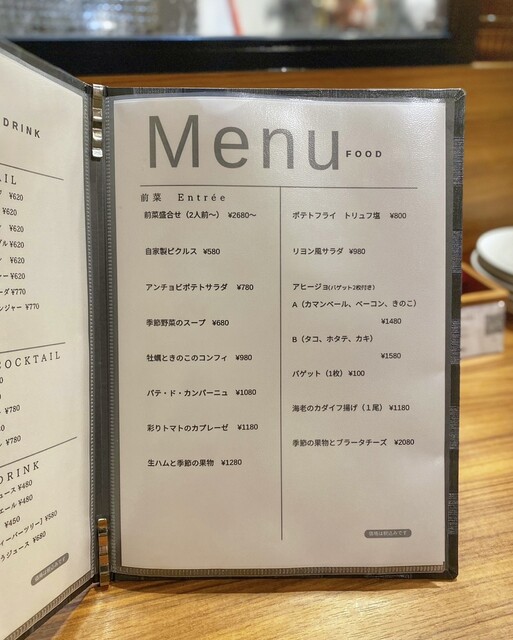 DRINK
¥620
¥620
¥620
¥620
¥620
¥770
¥770
COCKTAIL
¥780
¥780
DRINK
¥480
¥480
¥450
¥580
¥680
Menu FOOD
前菜 Entrée
前菜盛合せ（2人前〜） ¥2680〜
自家製ピクルス ¥580
アンチョビポテトサラダ ¥780
季節野菜のスープ ¥680
牡蠣ときのこのコンフィ ¥980
パテ・ド・カンパーニュ ¥1080
彩りトマトのカプレーゼ ¥1180
生ハムと季節の果物 ¥1280
ポテトフライ トリュフ塩 ¥800
リヨン風サラダ ¥980
アヒージョ(バゲット2枚付き)
A（カマンベール、ベーコン、きのこ）
¥1480
B（タコ、ホタテ、カキ）
¥1580
バゲット（1枚）¥100
海老のカダイフ揚げ（１尾） ¥1180
季節の果物とブラータチーズ ¥2080
価格は税込みです